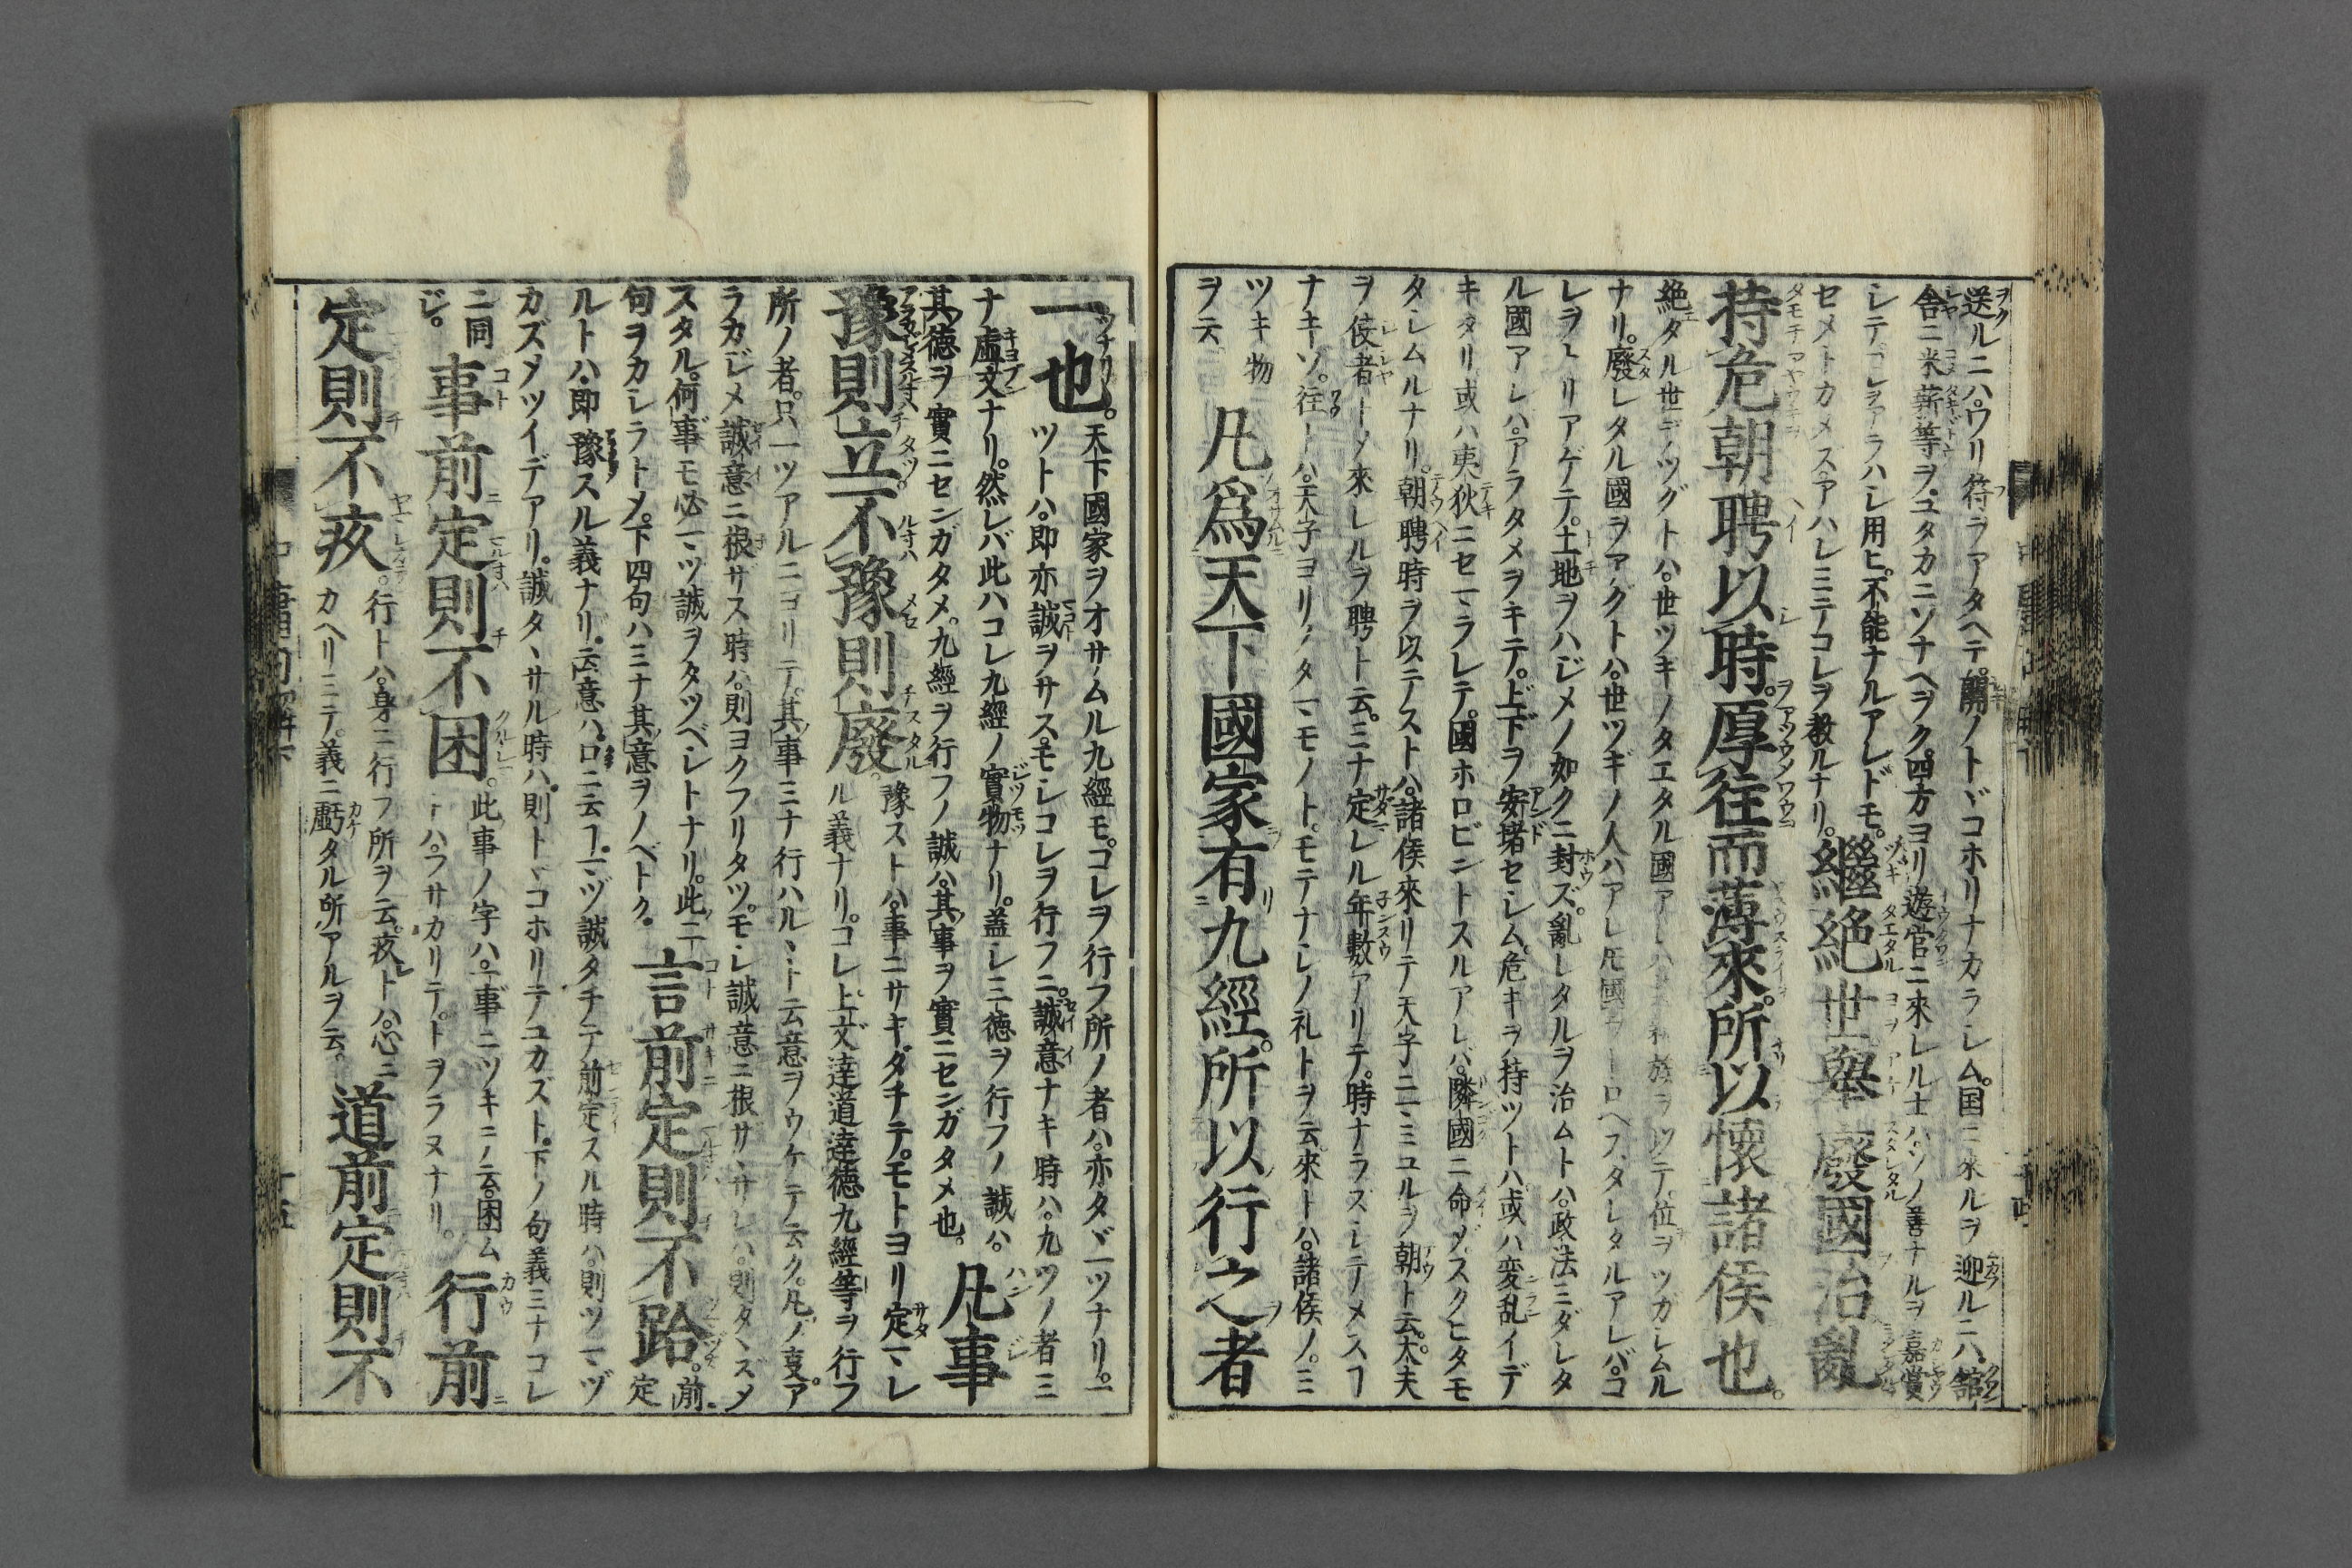 送ルニハ。ワリ符ヲアタヘテ。關ノトヾコホリナカラシム。国ニ來ルヲ迎ルニハ。館
舎ニ米薪等ヲ。ユタカニソナヘヲク。四方ヨリ遊官ニ來レル士ハ。ソノ善ナルヲ嘉賞
シテコレヲアラハシ用ヒ。不能ナルアレドモ。繼絶世舉廢國治亂
セメトカメズ。アハレミテコレヲ教ルナリ。
持危朝聘以時。厚往而薄來。所以懷諸侯也。
絶タル世ヲツグトハ。世ツギノタエタル國アレハ
族ヲツテ。位ヲツガシムル
ナリ。廢レタル國ヲアグトハ。世ツギノ人ハアレ𪜈國ヲホロヘス、タレタルアレバ。コ
レヲトリアゲテ。土地ヲハジメノ如クニ封ズ。亂レタルヲ治ムトハ。政法ミダレタ
ル國アレハ。アラタメヲキテ。上下ヲ安堵セシム。危キヲ持ツトハ。或ハ変乱イデ
キタリ或ハ夷狄ニセマラレテ。國ホロビントスルアレバ。隣國ニ命メ。スクヒタモ
タシムルナリ。朝聘時ヲ以テストハ。諸侯來リテ天子ニマミユルヲ朝ト云。大夫
ヲ使者トメ來レルヲ聘ト云。ミナ定レル年數アリテ。時ナラズシテメスヿ
ナキゾ。往トハ。天子ヨリタマモノト。モテナシノ礼トヲ云。來トハ。諸侯ノ。ミ
ツキ物
ヲ云
凡爲天下國家有九經。所以行之者
一也。天下國家ヲオサムル九經モ。コレヲ行フ所ノ者ハ。亦タヾ一ツナリ。一
ツトハ。即亦誠ヲサス。モシコレヲ行フニ。誠意ナキ時ハ。九ツノ者ミ
ナ虛文ナリ。然レバ此ハコレ九經ノ實物ナリ。蓋シ三德ヲ行フノ誠ハ。凡事
其德ヲ實ニセンガタメ。九經ヲ行フノ誠ハ。其事ヲ實ニセンガタメ也。
豫則立不豫則廢。豫ストハ。事ニサキダチテ。モトヨリ定マレ
ル義ナリ。コレ上文達道達德九經等ヲ行フ
所ノ者。只一ツアルニヨリテ。其事ミナ行ハル、ト云意ヲウケテ云ク。凡ノ事。ア
ラカジメ誠意ニ根ザス時ハ。則ヨクフリタツ。モシ誠意ニ根ザ、サレハ。則タ、ズメ
スタル。何事モ必マヅ誠ヲタツベレトナリ。此二
句ヲカシラトメ。下四句ハミナ其意ヲノベトク。
言前定則不跲。前定
ルトハ。即豫スル義ナリ。云意ハ。口ニ云ヿ。マヅ誠タチテ前定スル時ハ。則ツマヅ
カズメツイデアリ。誠タ、サル時ハ。則トヾコホリテユカズト。下ノ句義ミナコレ
ニ同
ジ。
事前定則不困。此事ノ字ハ。一事ニツキテノ云。困ム
トハ。フサカリテ。トヲラヌナリ。
行前
定則不疚。行トハ。身ニ行フ所ヲ云。疚トハ。心ニ
カヘリミテ。義ニ虧タル所アルヲ云。
道前定則不